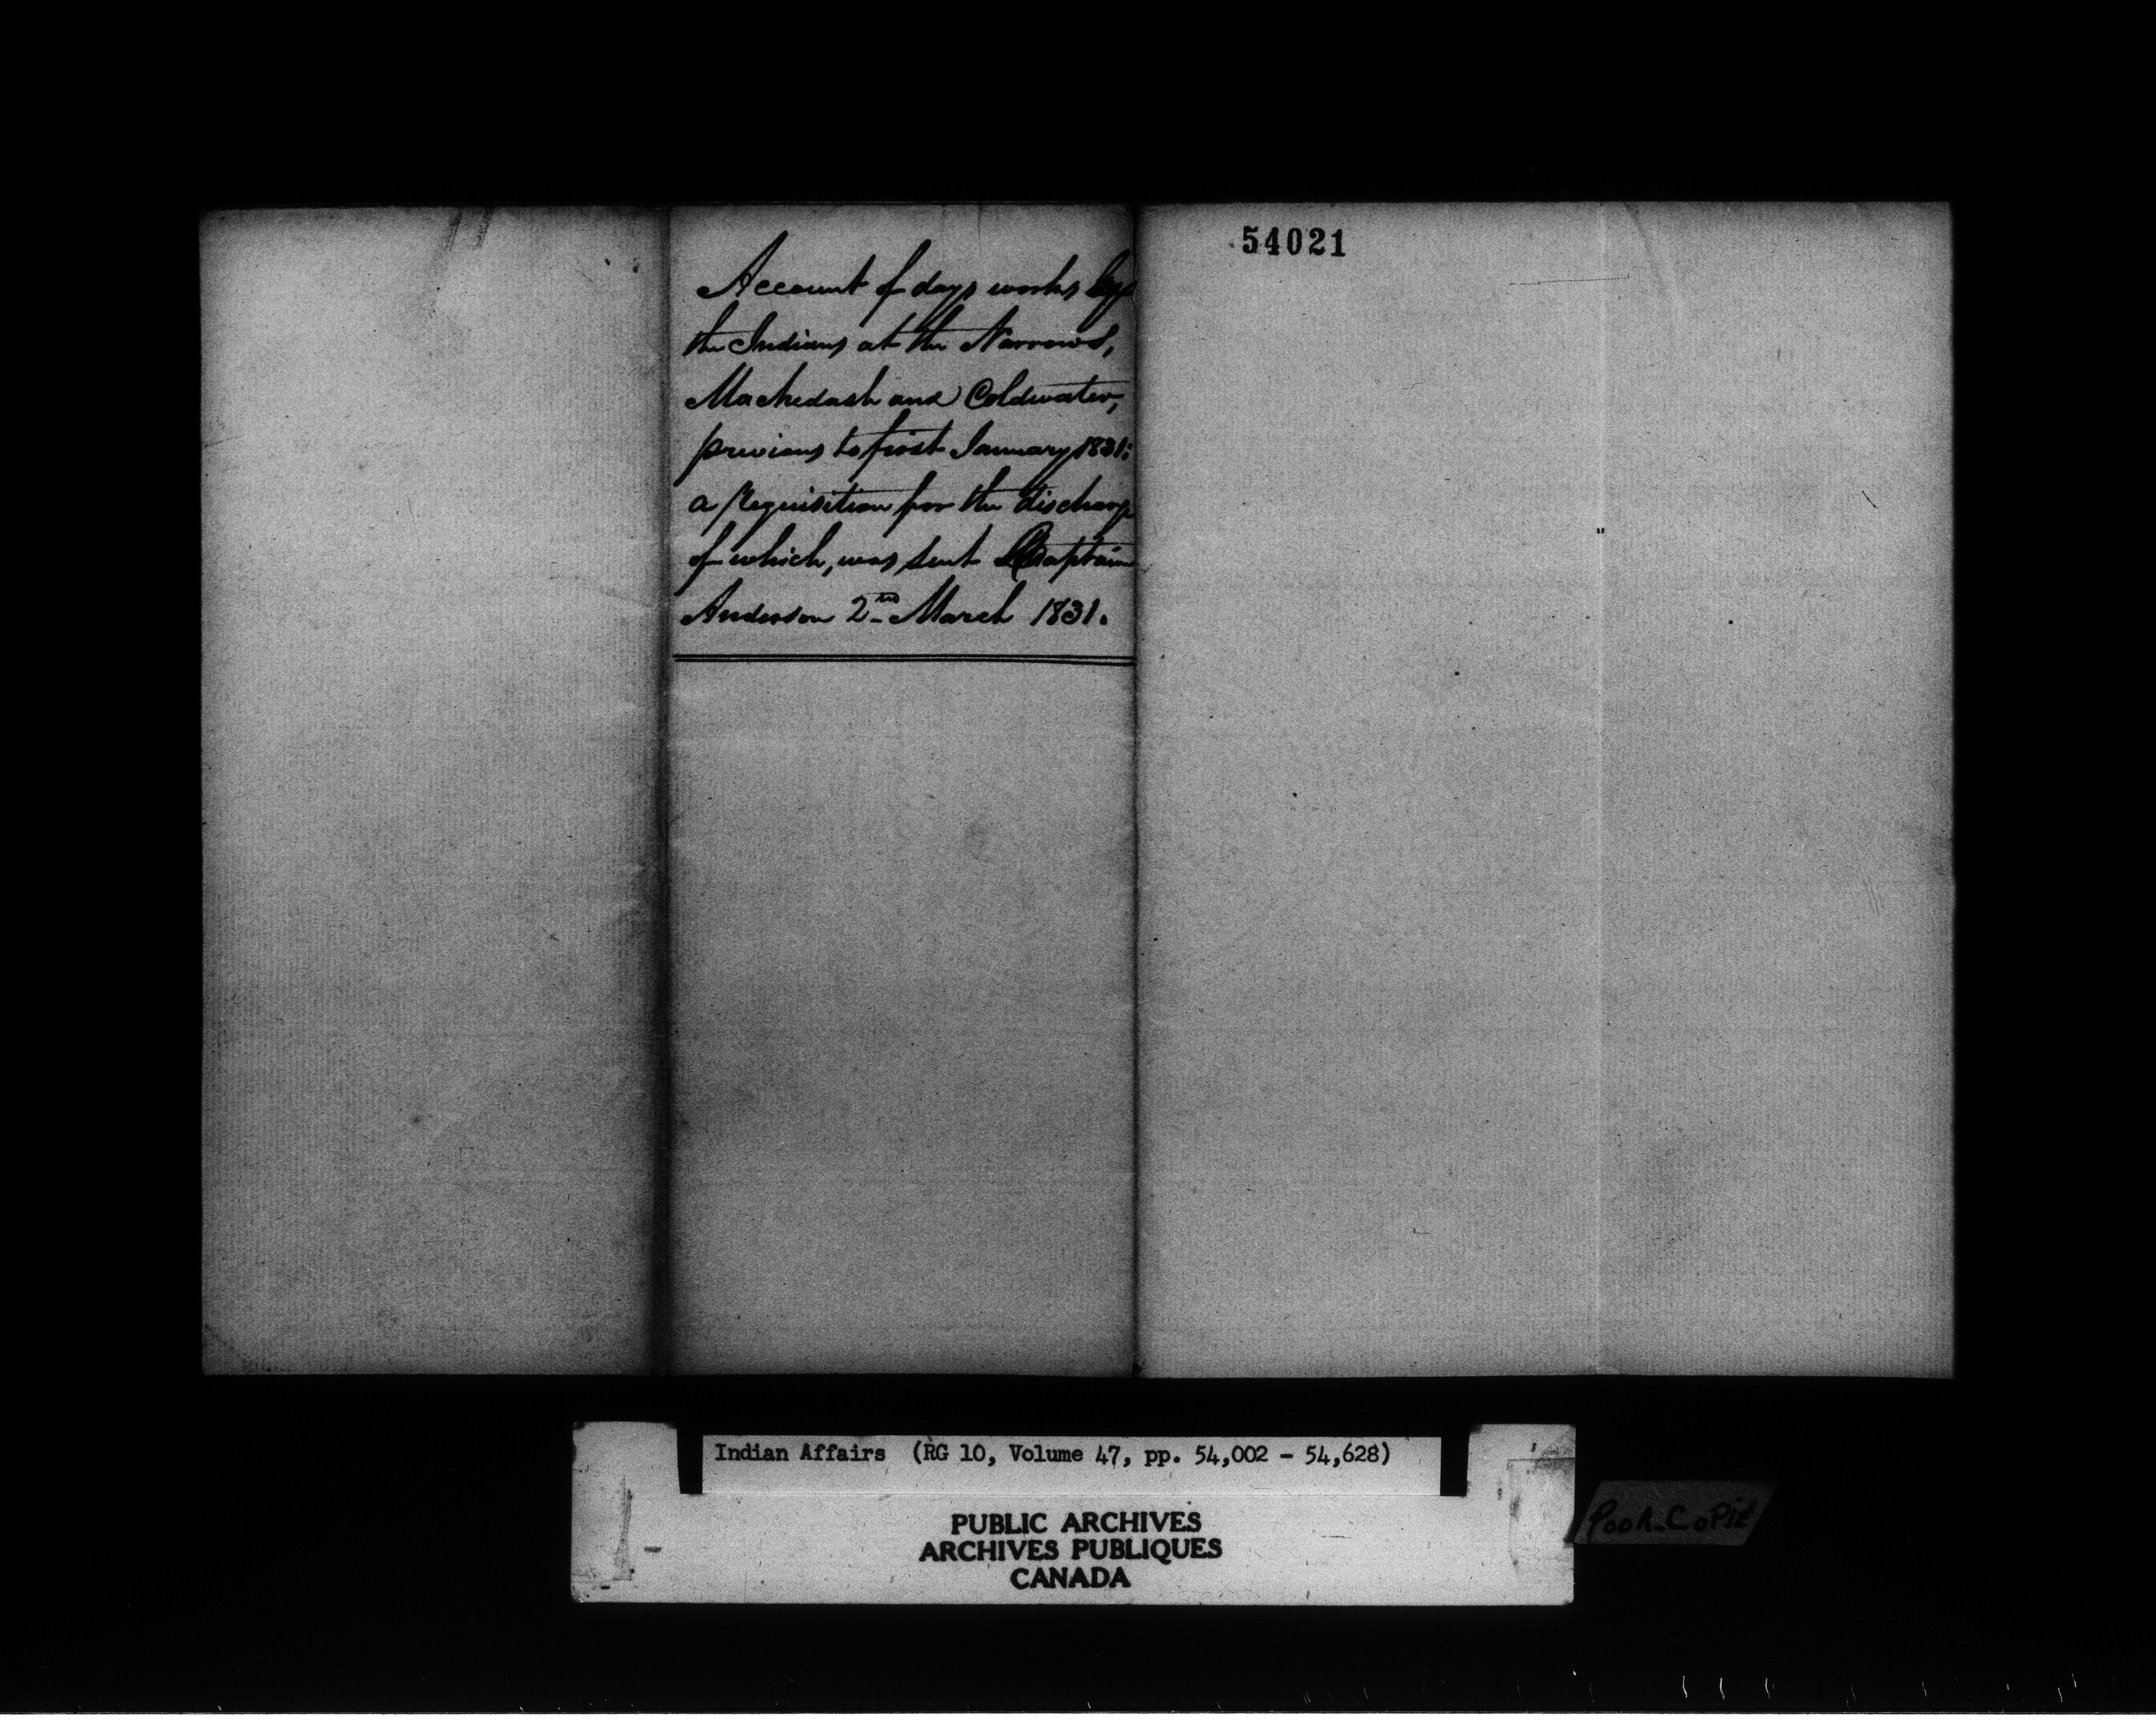 Account of days works by
the Indians at the Narrows,
Machedash and Coldwater,
previous to first January 1831:
a requisition for the discharge
of which, was sent Captain
Anderson 2nd March 1831.
54021
Indian Affairs (RG 10, Volume 47, pp. 54,002 - 54,628)
PUBLIC ARCHIVES
ARCHIVES PUBLIQUES
CANADA
Poor.CoPie